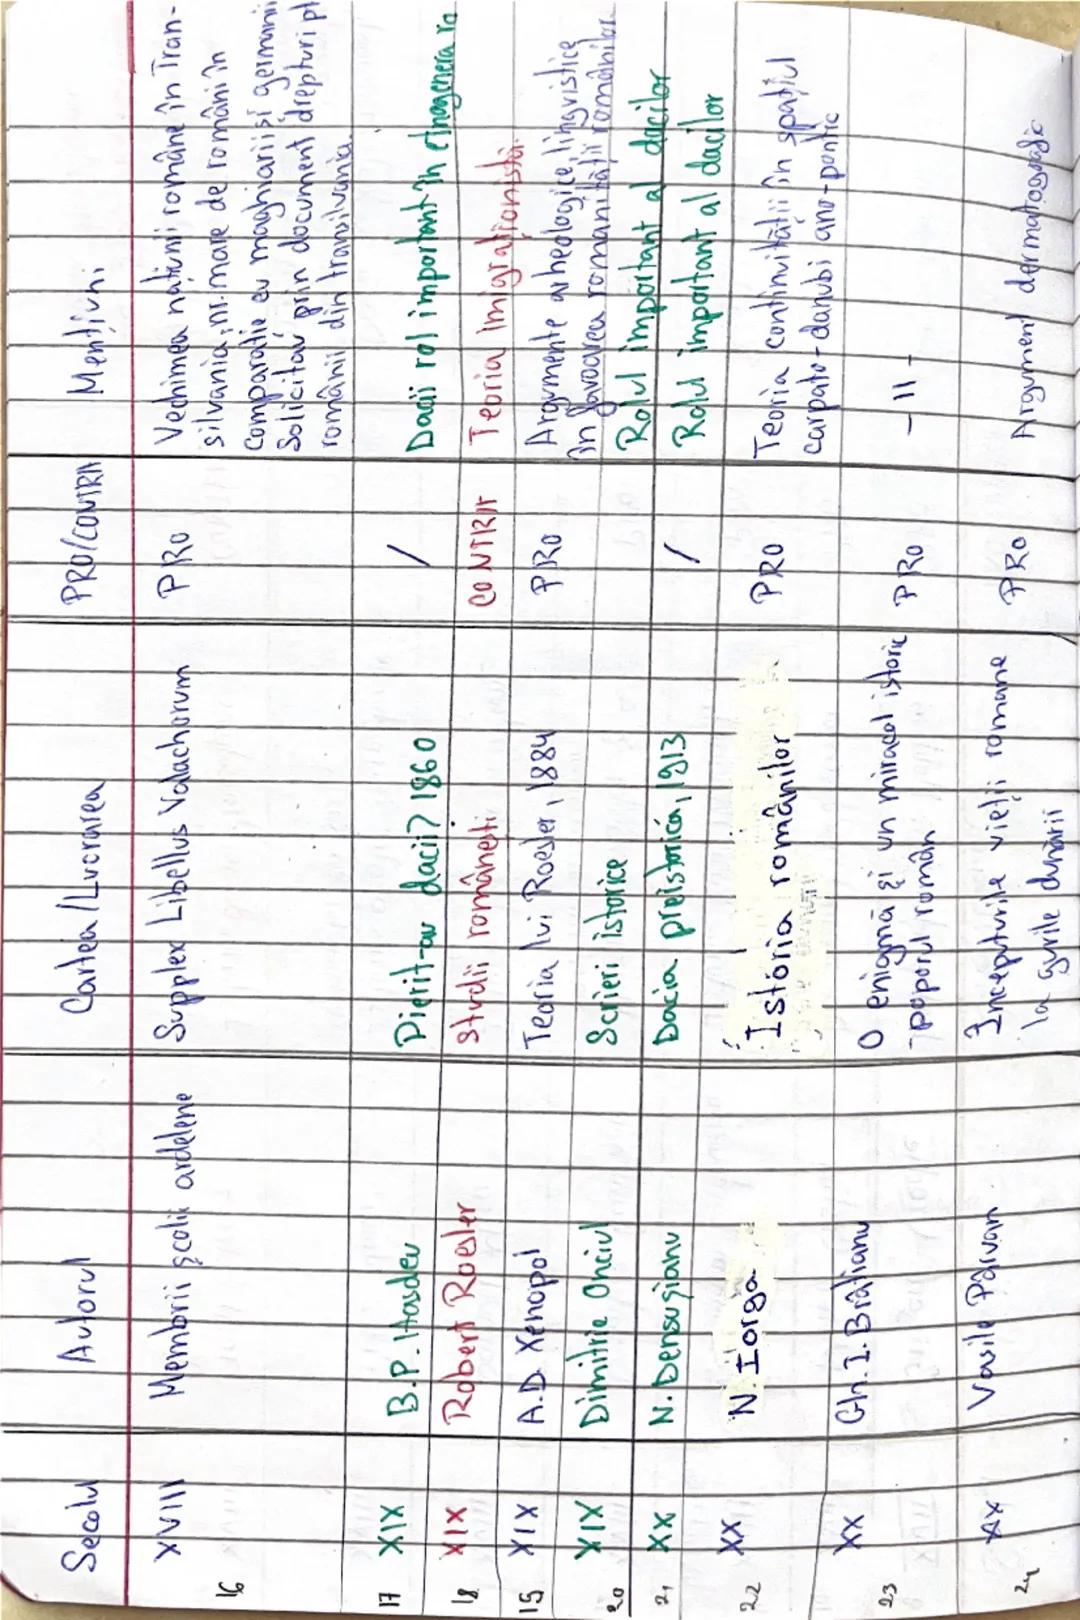 Secolul Autorul Cartea/Lucrarea PRO/CONTRA Mențiuni
16 XVIII Membrii școlii ardelene Supplex Libellus Valachorum PRO Vechimea națiunii române în Tran-
silvania, nr. mare de români în
comparație cu maghiarii și germanii
Solicitau prin document drepturi pt
românii din transilvania.
17 XIX B.P. Hasdeu Pierit-au dacii? 1860 / Dacii rol important în etnogeneza ro
18 XIX Robert Roesler studii românești CONTRA Teoria imigraționistă.
19 XIX A.D. Xenopol Teoria lui Roesler, 1884 PRO Argumente arheologice, lingvistice
în favoarea romanității românilor.
20 XIX Dimitrie Onciul Scrieri istorice Rolul important al dacilor
21 XX N. Densușianu Dacia preistorică, 1913 / Rolul important al dacilor
22 XX N. Iorga Istoria românilor PRO Teoria continuității în spațiul
carpato-danubiano-pontic
23 XX Gh. I. Brătianu O enigmă și un miracol istoric PRO -11-
poporul român
24 XX Vasile Pârvan Începuturile vieții romane PRO Argument dermatografic
la gurile dunării